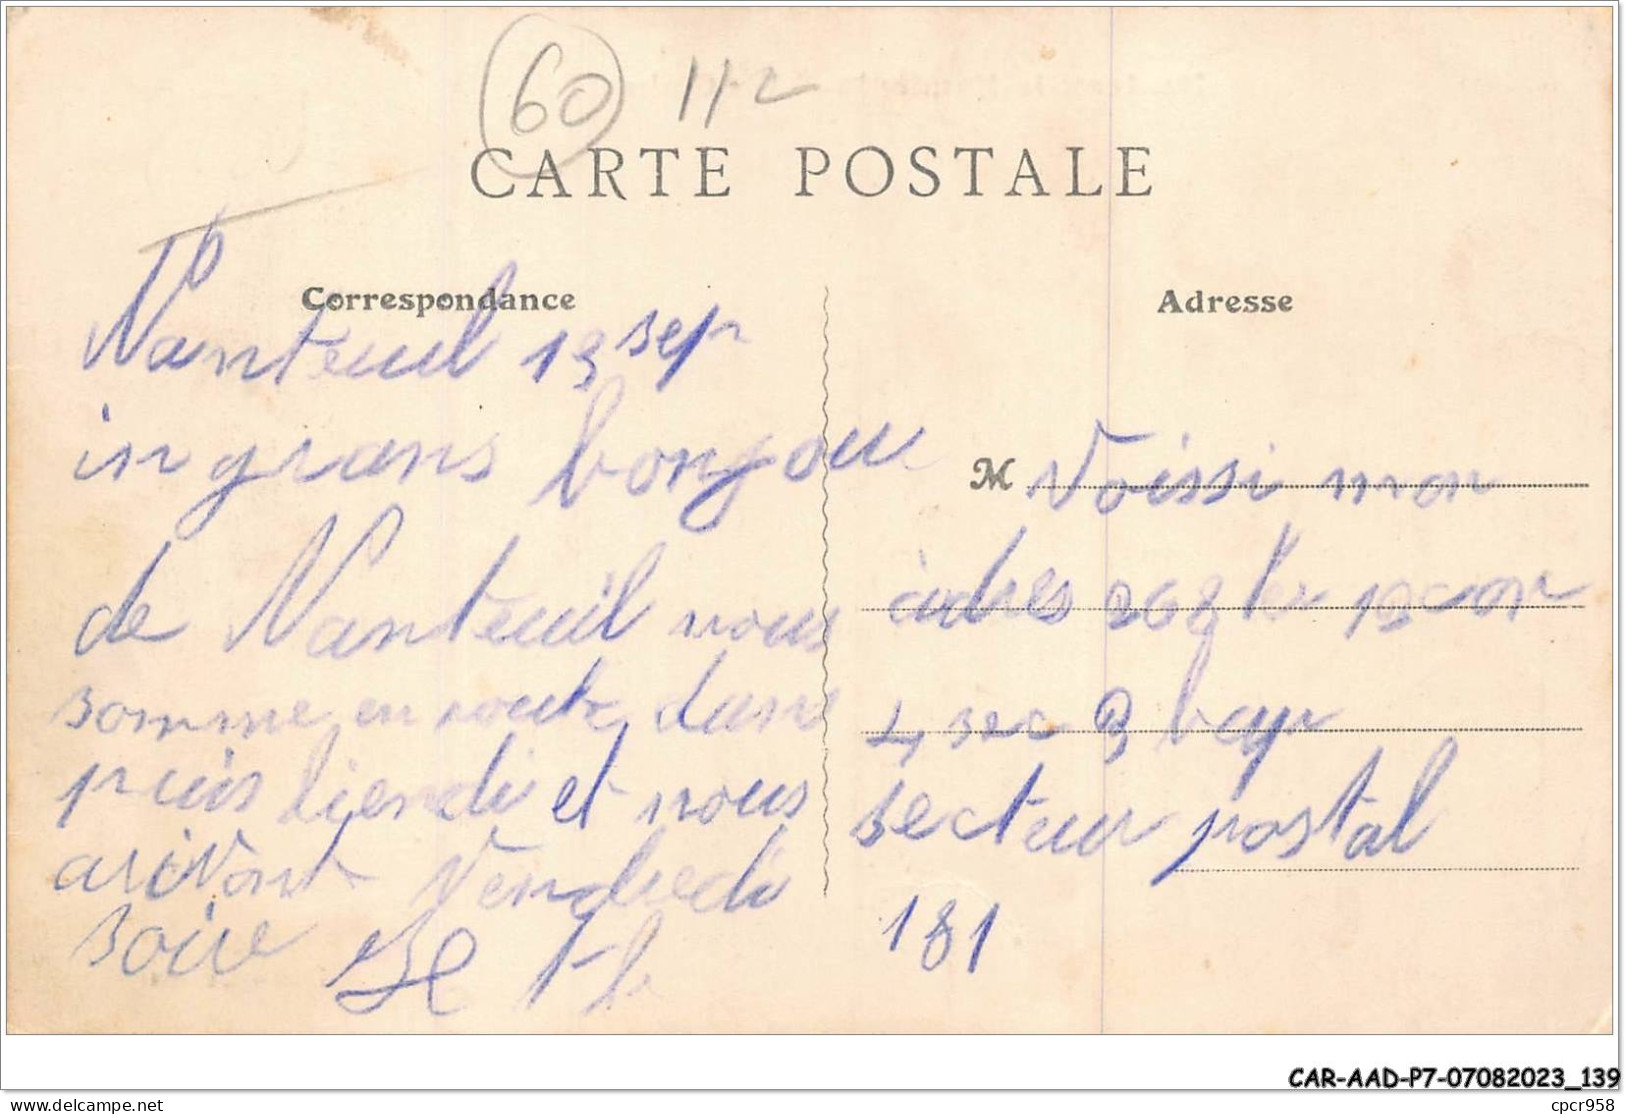 60 112
CARTE POSTALE
Correspondance
Nanteuil 13 sep
in grans bonjou
de Nanteuil nous
somme en route dans
puis liendi et nous
arivont Vendredi
soire
Adresse
M Voissi mon
adres 268
4 sec 3
secteur postal
181
CAR-AAD-P7-07082023_139
delcampe.net
cpcr958